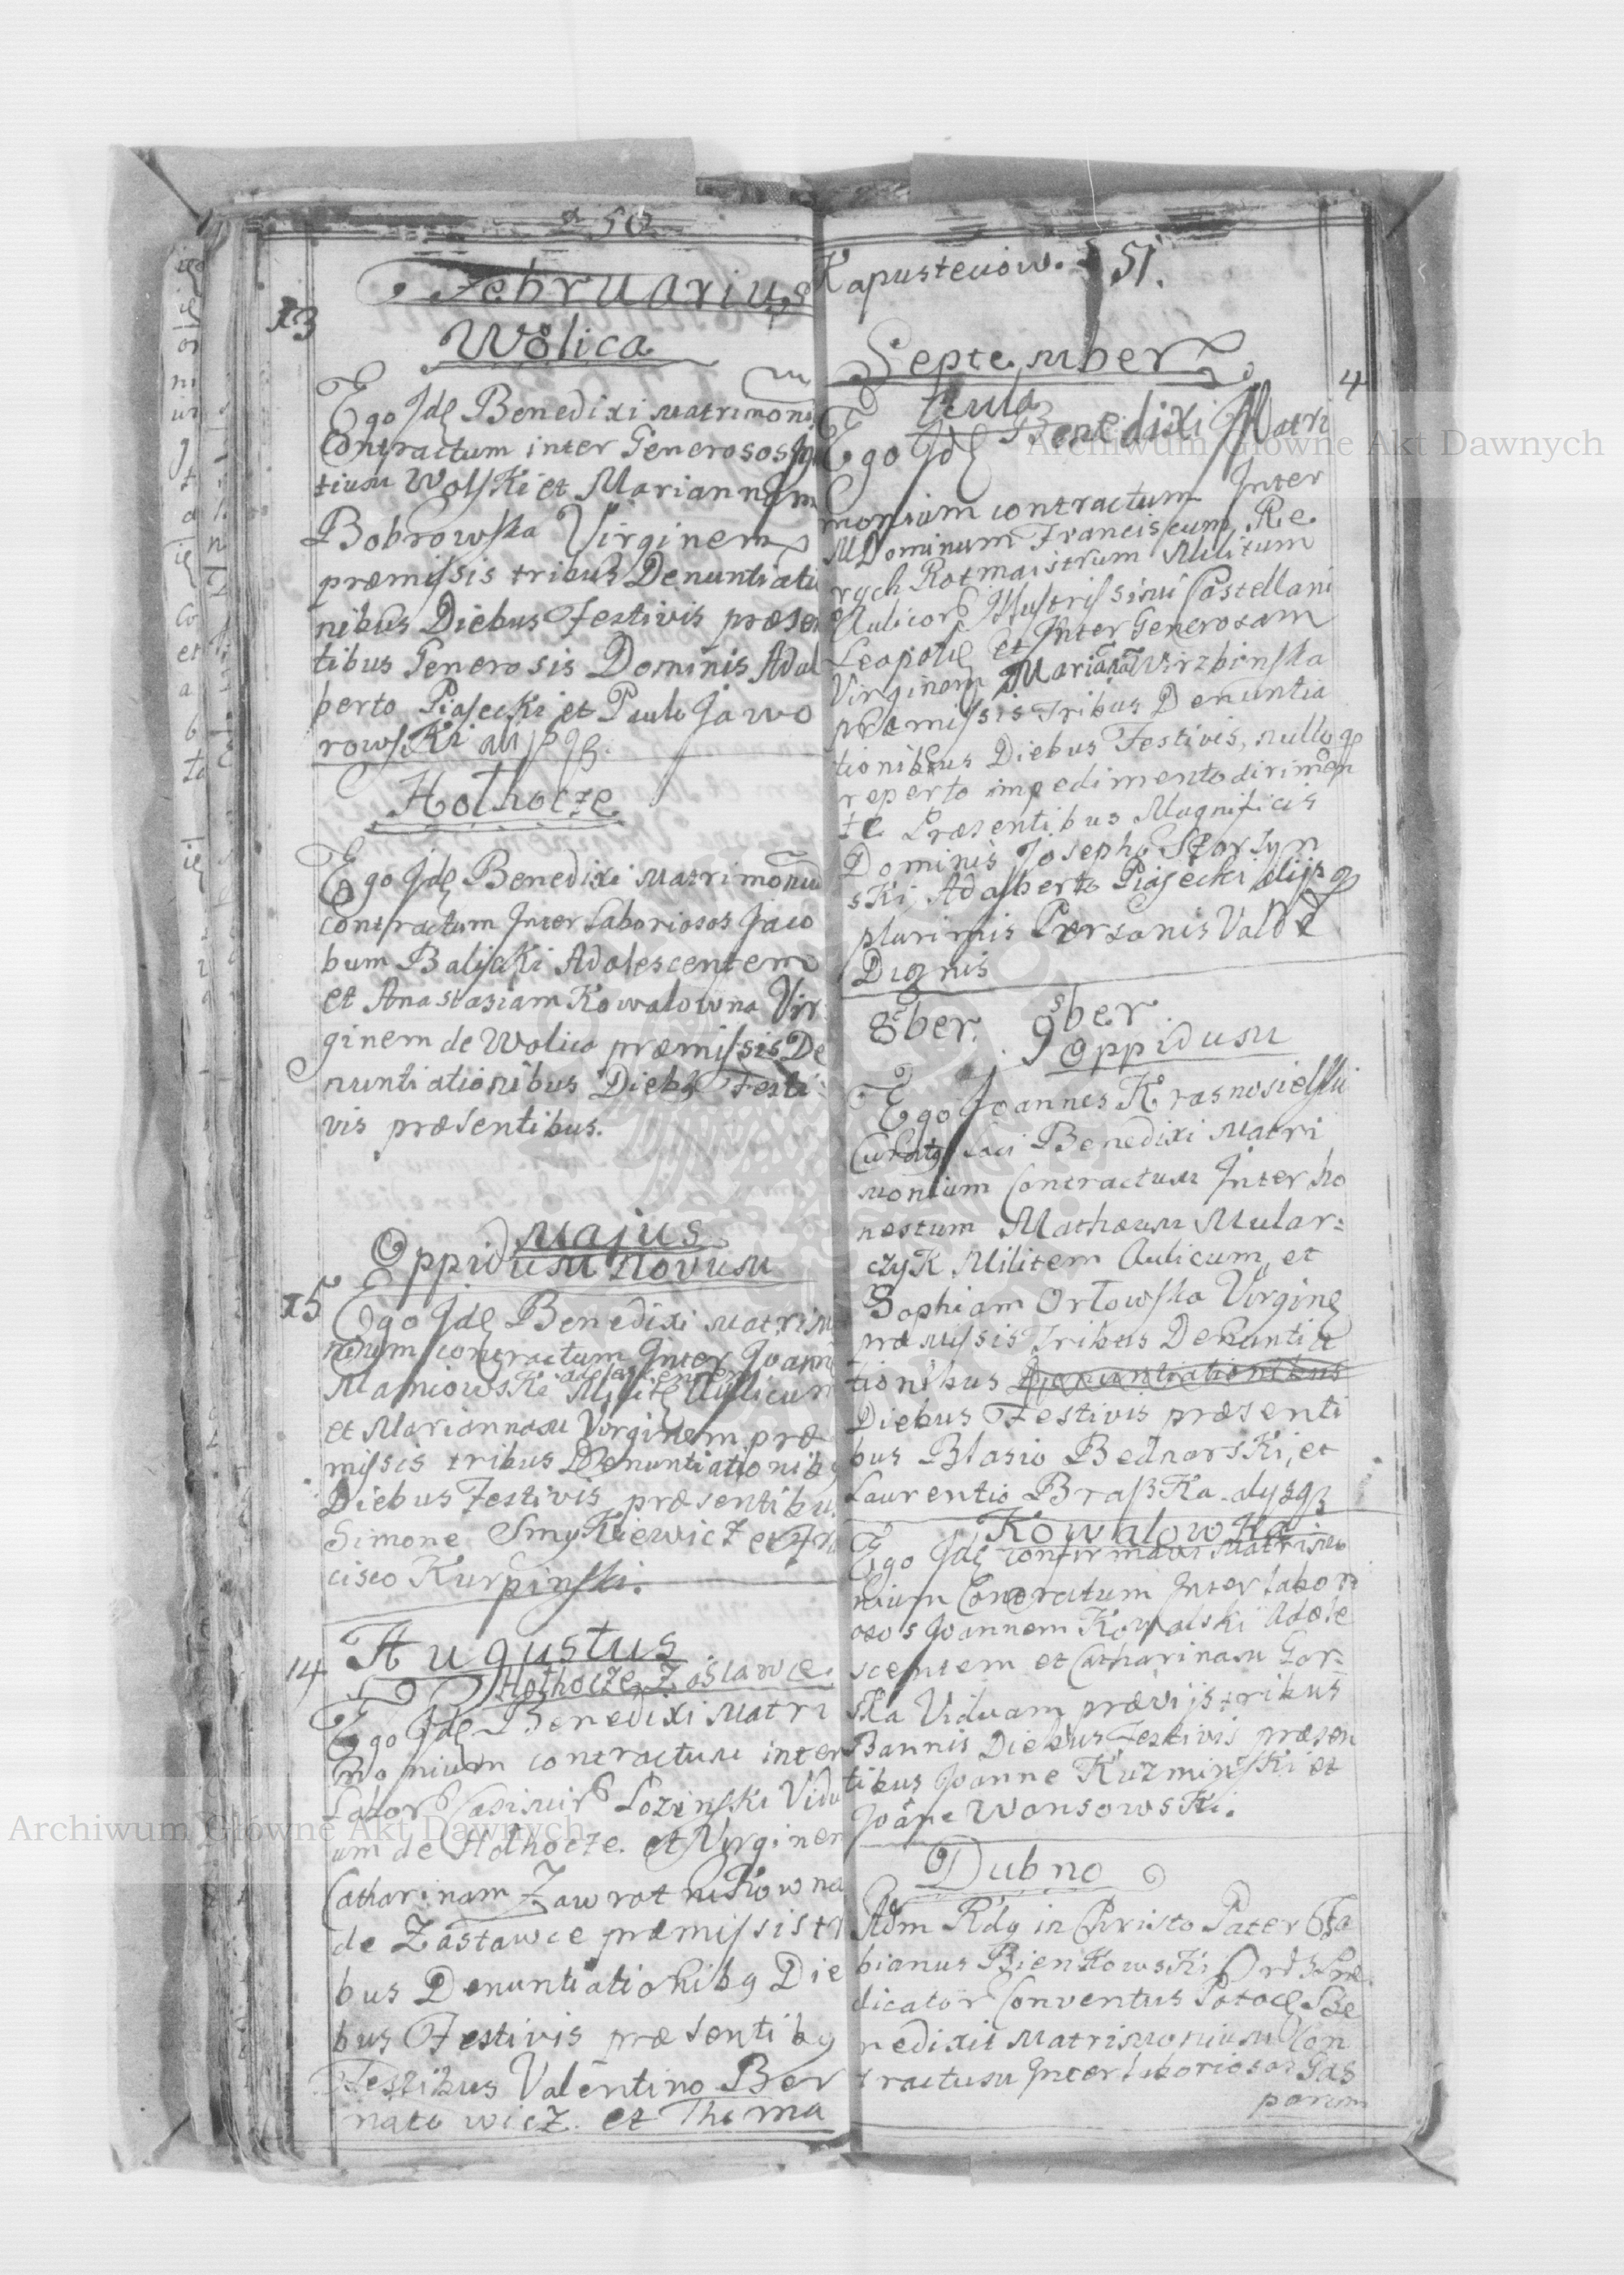 50
Februarius
13
Wolica
Ego Idę Benedixi matrimoni
Contractum inter Generosos Ign
tium Wolski et Mariannam
Bobrowska Virginem
præmissis tribus Denuntiatio
nibus Diebus Festivis præsen
tibus Generosis Dominis Adal
berto Piasecki et Paulo Jawo
rowski
Hothocze
Ego Idę Benedixi matrimoniu
Contractum Inter Laboriosos Jaco
bum Balicki Adolescentem
et Anastasiam Kowalowna Vir
ginem de Wolica præmissis De
nuntiationibus Dieb9 Festi
vis præsentibus.
Majus
Oppidum Novum
15
Ego Idę Benedixi matrimo
nium contractum Inter Joann
adolescentem
Maniowski Militę Aulicum
et Mariannam Virginem præ
missis tribus Denuntiationib9
Diebus Festivis præsentibu
Simone Smykiewicz et Fr
cisco Kurpinski.
Augustus
14
Hothocze Zastawce
Ego Idę Benedixi Matri
monium contractum inter
Labor Casimir Lozinski Vidu
um de Hothocze. et Virginem
Catharinam Zawrotnikowna
de Zastawce præmissis tri
bus Denuntiationib9 Die
bus Festivis præsentib9
Testibus Valentino Ber
natowicz. et Thoma
Kapusteuow. 51.
September
4
Aula
Ego Idę Benedixi Matri
monium contractum Inter
M Dominum Franciscum Re
rych Rotmaistrum Militum
Aulicor Illustrissimi Castellani
Leopolię et Inter Generosam
Virginem Mariana Wirzbinska
præmissis Tribus Denuntia
tionibus Diebus Festivis, nullo q
reperto impedimento dirimen
te Præsentibus Magnificis
Dominis Josepho Starzyn
ski, Adalberto Piasecki alijs q
plurimis Personis Valde
Dignis
8ber. 9ber
Oppidum
Ego Joannes Krasnosielski
Curat9 Loci Benedixi Matri
monium Contractum Inter ho
nestum Mathæum Mular=
czyk Militem Aulicum, et
Sophiam Orłowska Virginę
præmissis Tribus Denuntia
tionibus Denuntiationibus
Diebus Festivis præsenti
bus Blasio Bednarski, et
Laurentio Braßka
Kowalowka
Ego Idę confirmavi Matrimo
nium Contractum Inter labori
osos Joannem Kowalski Adole
scentem et Catharinam Gor=
ska Viduam prævijs tribus
Bannis Diebus Festivis præsen
tibus Joanne Kuzminski et
Joane Wonsowski.
Dubno
Adm Rdg in Christo Pater Fa
bianus Bienkowski Ord Præ
dicator Conventus Potoc Be
nedixit Matrimonium Con
tractum Inter Laboriosos Gas
parum
Archiwum Główne Akt Dawnych
Archiwum Główne Akt Dawnych